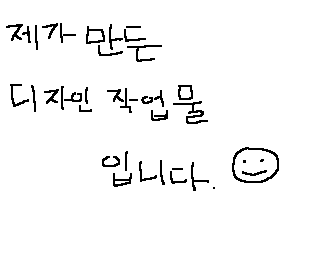 제가 만든
디자인 작업물
입니다.